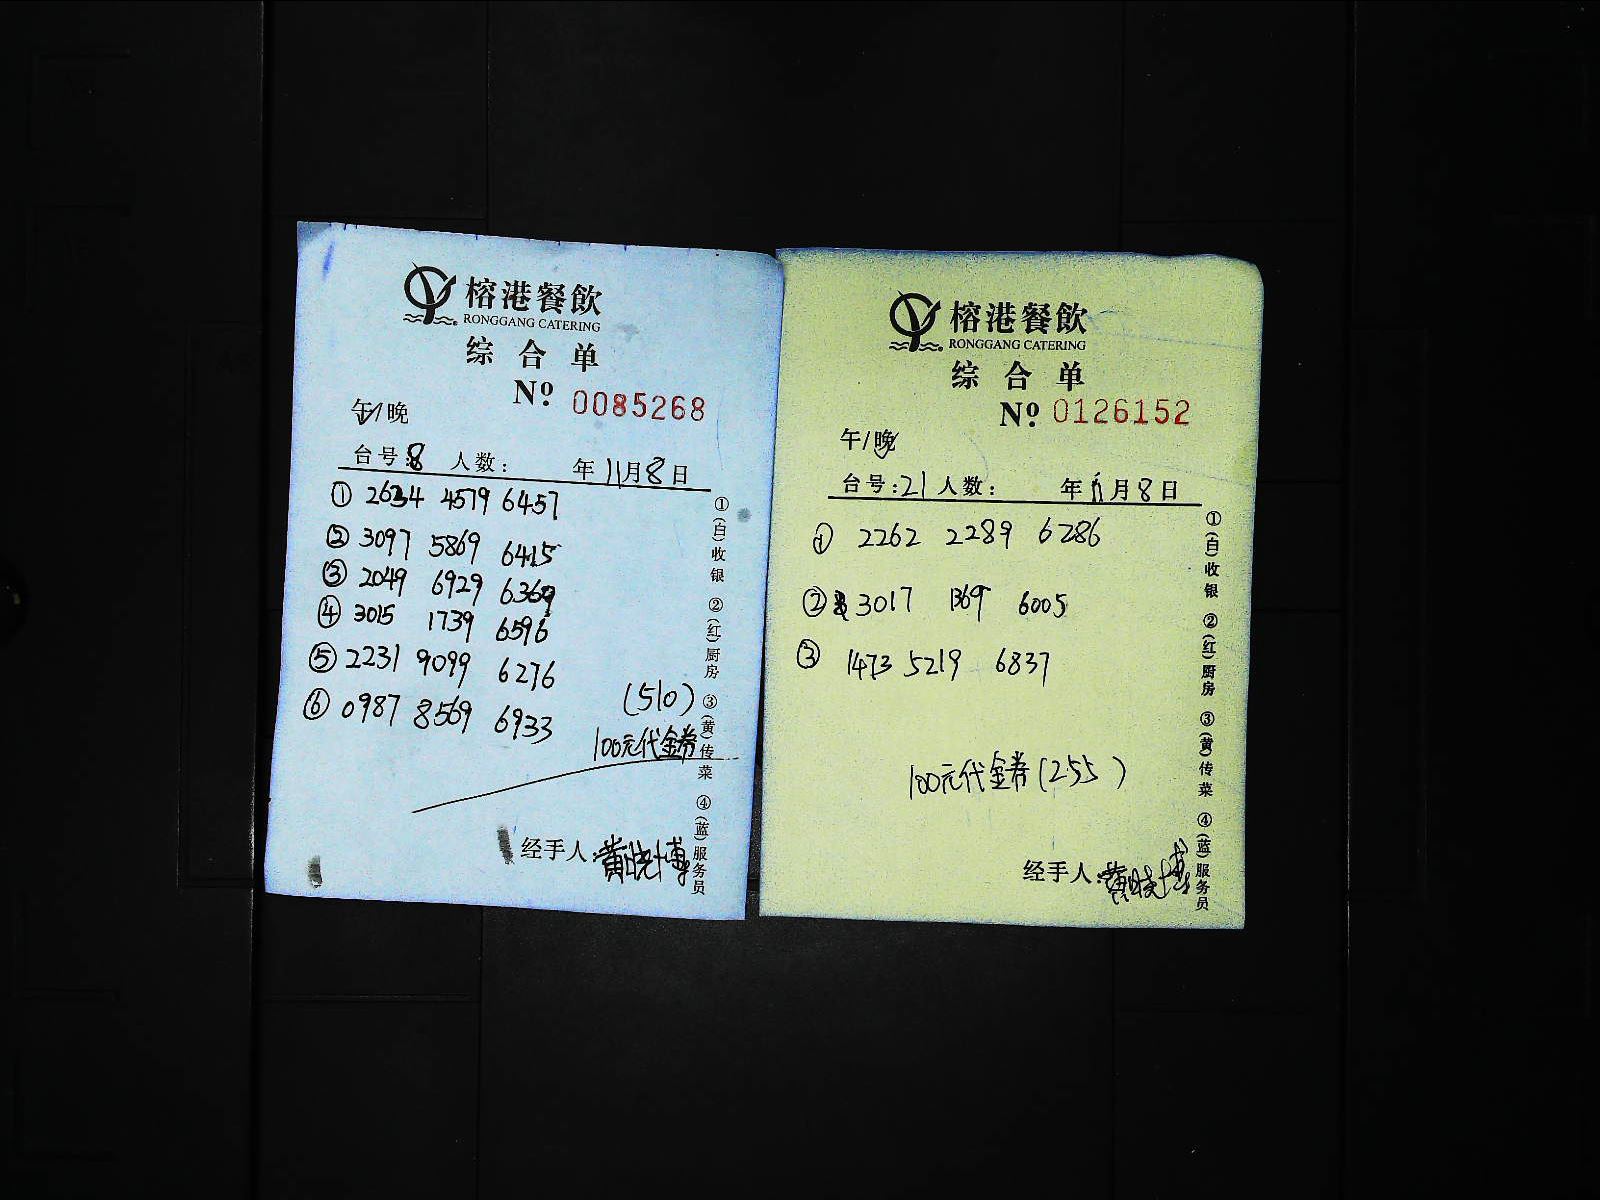 榕港餐飲
RONGGANG CATERING
综合单
Nº 0085268
午/晚
台号:8 人数: 年11月8日
① 2634 4579 6457
② 3097 5869 6415
③ 2049 6929 6369
④ 3015 1739 6596
⑤ 2231 9099 6276
⑥ 0987 8569 6933
(510)
100元代金券
经手人:黄晓博
①(白)收银 ②(红)厨房 ③(黄)传菜 ④(蓝)服务员
榕港餐飲
RONGGANG CATERING
综合单
Nº 0126152
午/晚
台号:21 人数: 年11月8日
① 2262 2289 6286
② 3017 1369 6005
③ 1473 5219 6837
100元代金券(255)
经手人:黄晓博
①(白)收银 ②(红)厨房 ③(黄)传菜 ④(蓝)服务员